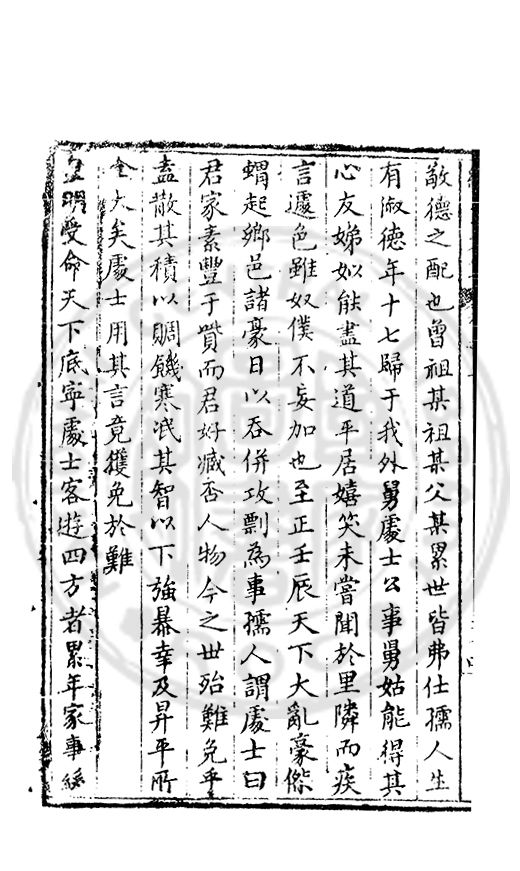 敵德之配也曾祖某祖某父某累世皆弗仕孺人生
有淑德年十七歸于我外舅處士公事舅姑能得其
心友娣姒能盡其道平居嬉笑未嘗聞於里隣而疾
言遽色雖奴僕不妄加也至正壬辰天下大亂豪傑
蝟起鄉邑諸豪日以吞併攻剽為事孺人謂處士曰
君家素豐于貲而君好臧否人物今之世殆難免乎
盍散其積以賙饑寒泯其智以下強暴幸及昇平所
全大矣處士用其言竟獲免於難
皇明受命天下底寧處士客遊四方者累年家事